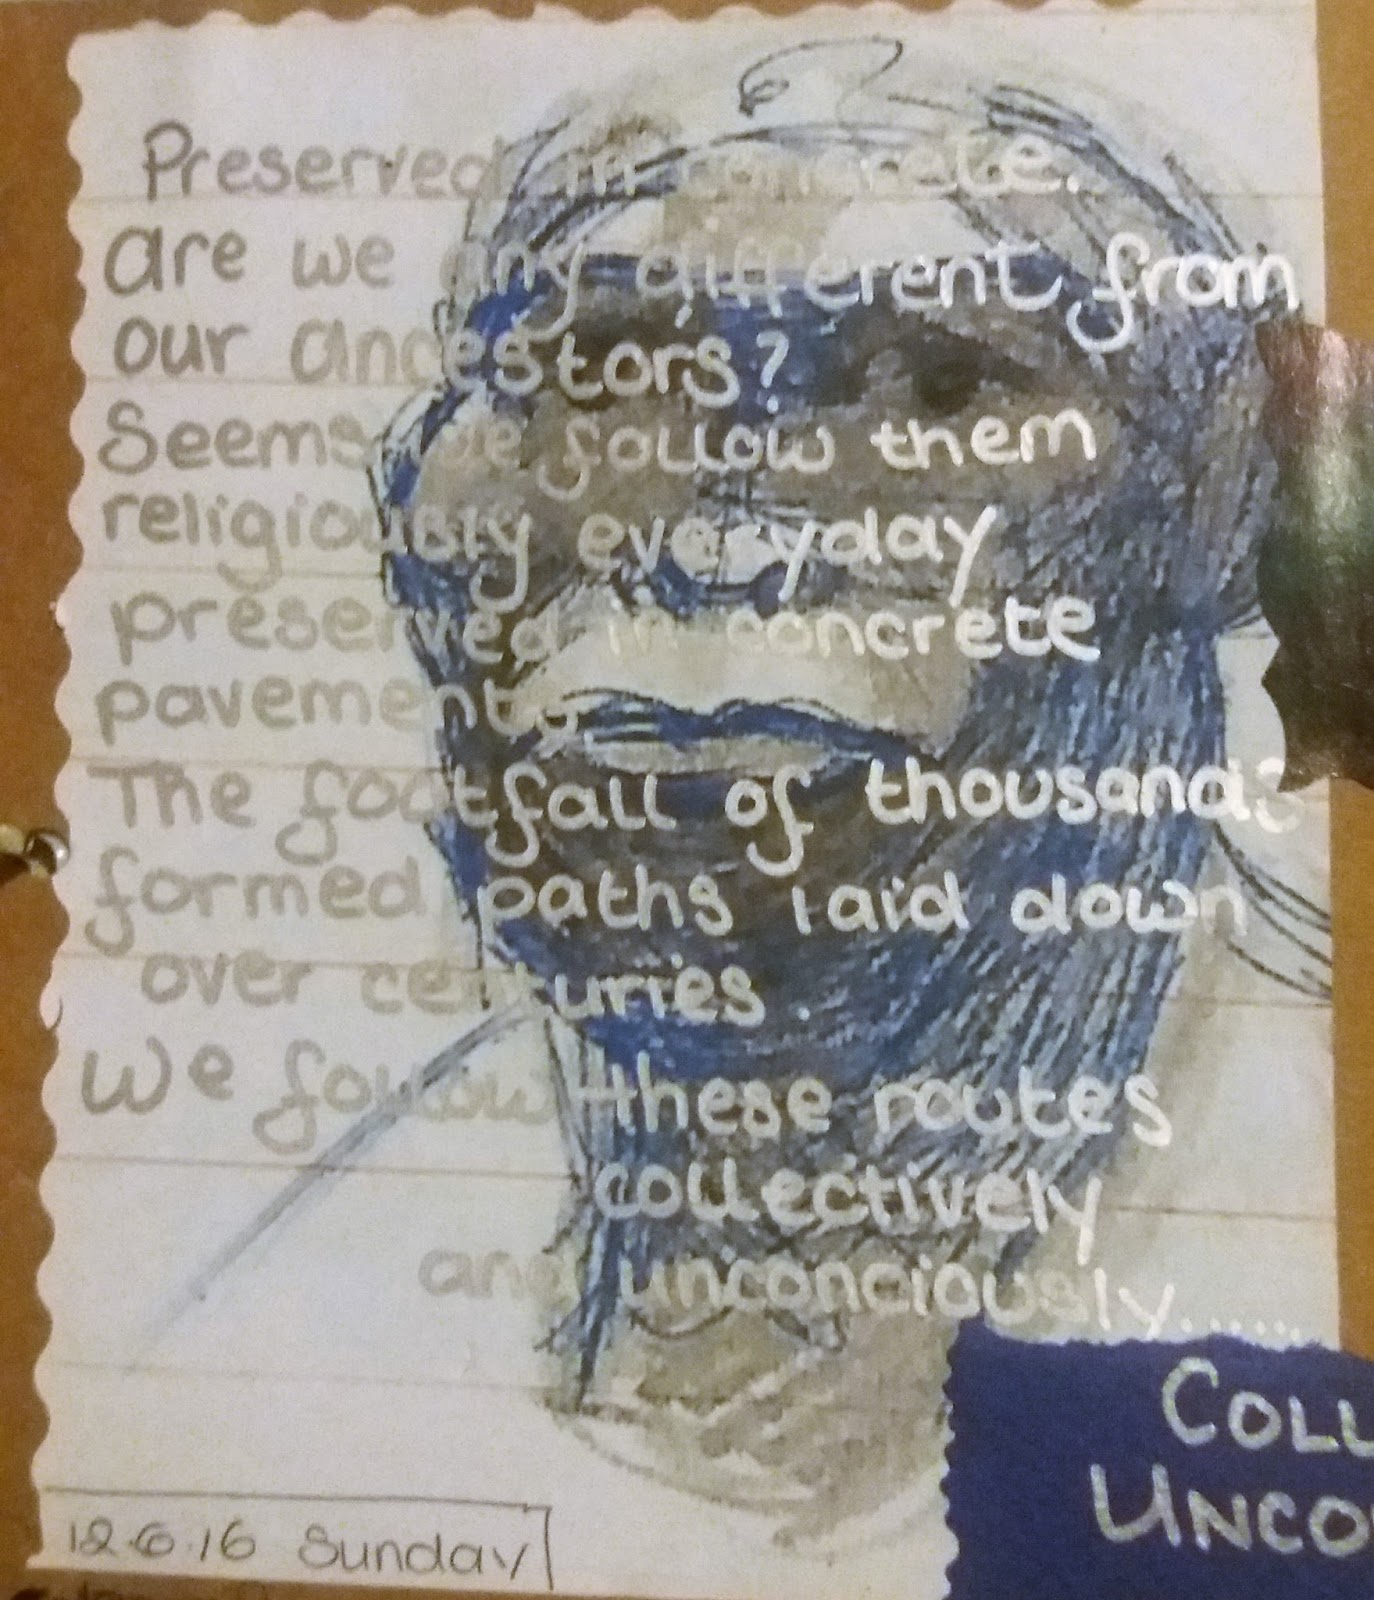 Preserved in concrete.
are we any different from
our ancestors?
Seems we follow them
religiously everyday
preserved in concrete
pavements,
The footfall of thousands
formed paths laid down
over centuries.
We follow these routes
collectively
and unconciously.......
COLL
UNCO
12.6.16 Sunday